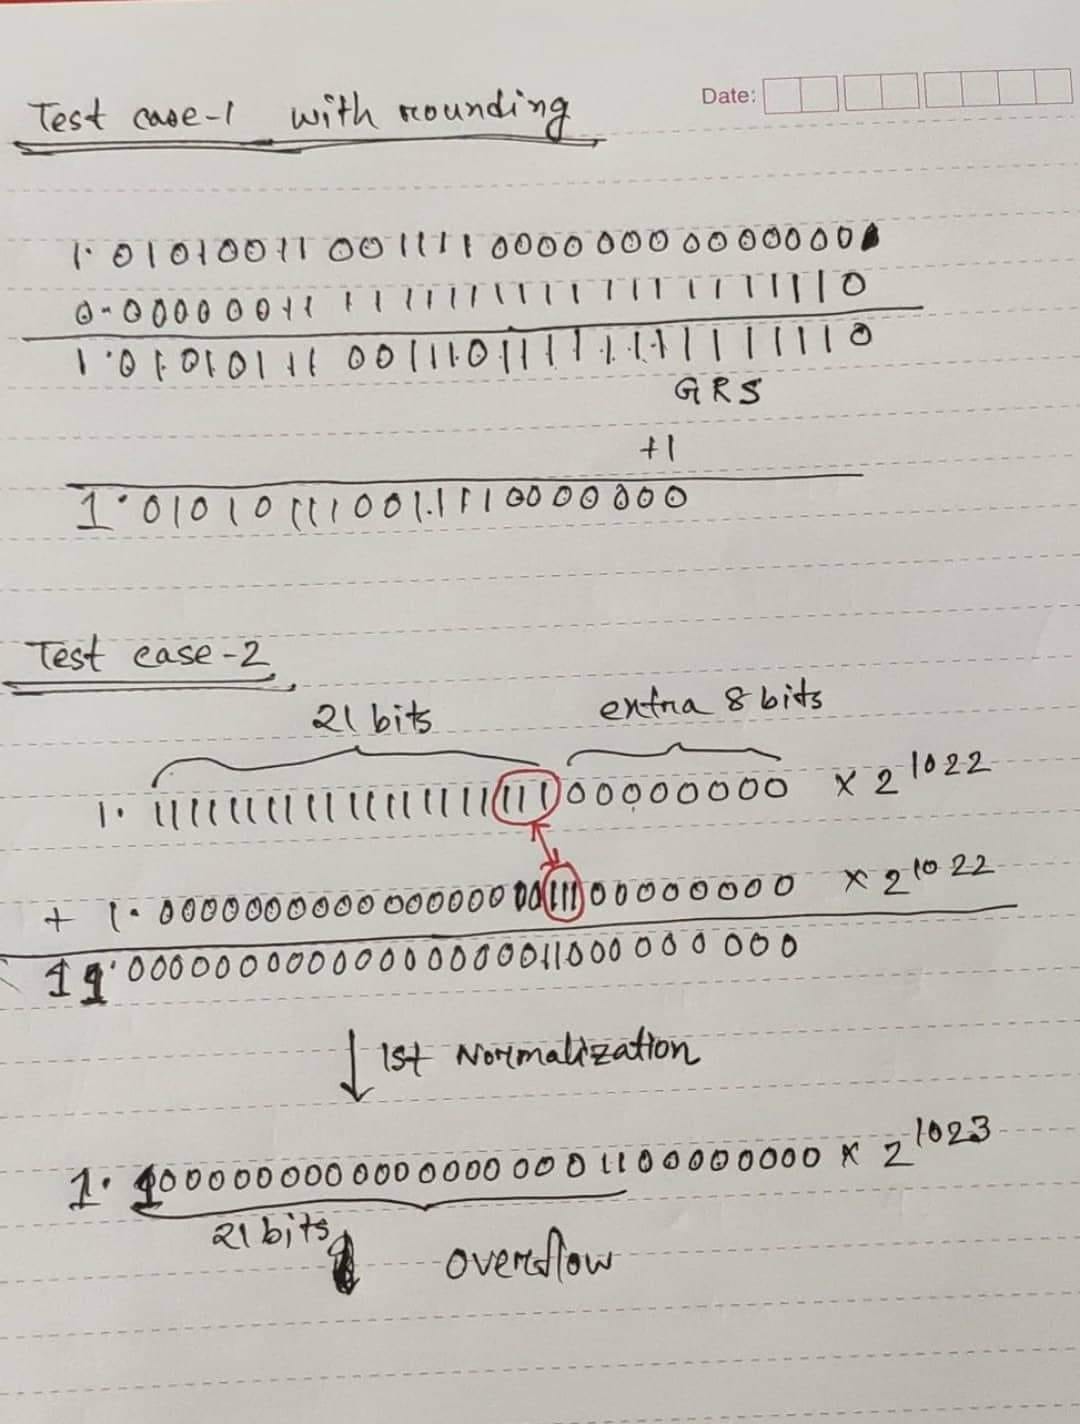 Date:
Test case-1 with rounding
1.01010011 001111 0000 000 00000000
0.00000011 111111111111111111111110
1.01010111 0011101111111111111110
GRS
+1
1.01010111001.11110000000
Test case-2
21 bits extra 8 bits
1.11111111111111111111100000000 x 2^1022
+ 1.00000000000000000011100000000 x 2^1022
11.00000000000000000011000000000
↓ 1st Normalization
1.100000000000000000011000000000 x 2^1023
21 bits overflow